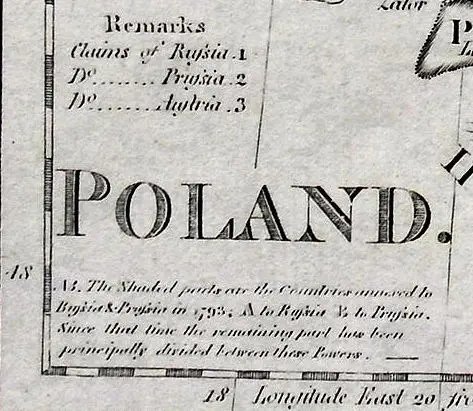 Lator
P
Remarks
Claims of Rußia. 1
Do........ Prußia. 2
Do........ Austria. 3
POLAND.
48
NB. The Shaded parts are the Countries annexed to
Rußia & Prußia in 1793; A to Rußia B to Prußia.
Since that time the remaining part has been
principally divided between these Powers.
18 Longitude East 20